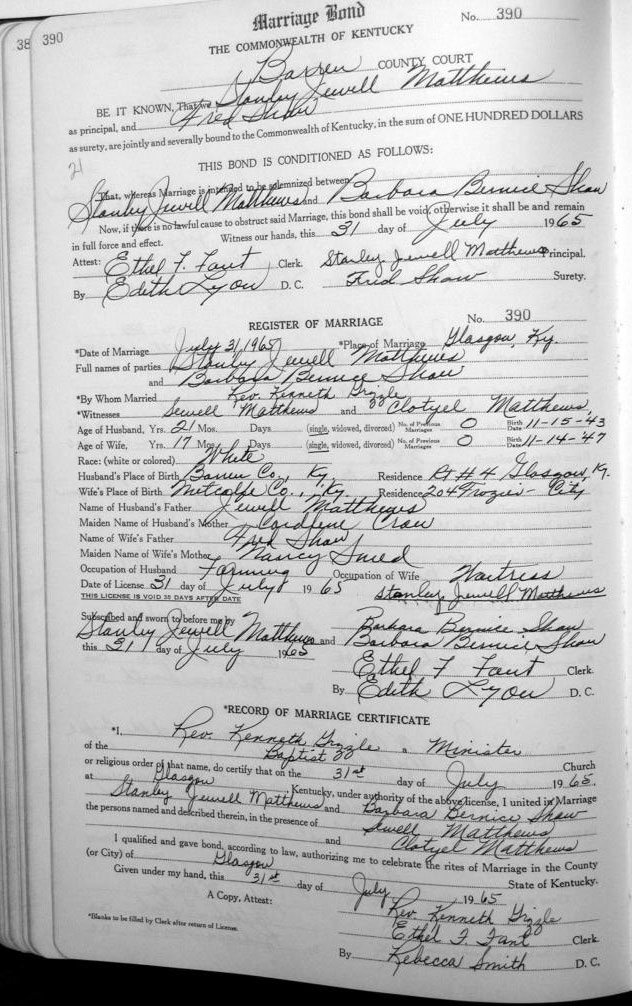 Marriage Bond
No. 390
38 390
THE COMMONWEALTH OF KENTUCKY
Barren COUNTY COURT
BE IT KNOWN, That we Stanley Jewell Matthews
as principal, and Fred Shaw
as surety, are jointly and severally bound to the Commonwealth of Kentucky, in the sum of ONE HUNDRED DOLLARS
21
THIS BOND IS CONDITIONED AS FOLLOWS:
That, whereas Marriage is intended to be solemnized between
Stanley Jewell Matthews and Barbara Bernice Shaw
Now, if there is no lawful cause to obstruct said Marriage, this bond shall be void, otherwise it shall be and remain
in full force and effect. Witness our hands, this 31 day of July 1965
Attest: Ethel F. Fant Clerk. Stanley Jewell Matthews Principal.
By Edith Lyon D. C. Fred Shaw Surety.
REGISTER OF MARRIAGE No. 390
*Date of Marriage July 31, 1965 *Place of Marriage Glasgow, Ky.
Full names of parties Stanley Jewell Matthews
and Barbara Bernice Shaw
*By Whom Married Rev. Kenneth Grizzle
*Witnesses Sewell Matthews and Clotyel Matthews
Age of Husband, Yrs. 21 Mos. Days (single, widowed, divorced) No. of Previous Marriages 0 Birth Date 11-15-43
Age of Wife, Yrs. 17 Mos. Days (single, widowed, divorced) No. of Previous Marriages 0 Birth Date 11-14-'47
Race: (white or colored) White
Husband's Place of Birth Barren Co., Ky. Residence Rt #4 Glasgow, Ky.
Wife's Place of Birth Metcalfe Co., Ky. Residence 204 Frozier - City
Name of Husband's Father Jewell Matthews
Maiden Name of Husband's Mother Crow
Name of Wife's Father Fred Shaw
Maiden Name of Wife's Mother Nancy
Occupation of Husband Farming Occupation of Wife Waitress
Date of License 31 day of July 1965 Stanley Jewell Matthews
THIS LICENSE IS VOID 30 DAYS AFTER DATE
Subscribed and sworn to before me by Barbara Bernice Shaw
Stanley Jewell Matthews and Barbara Bernice Shaw
this 31 day of July 1965
Ethel F Fant Clerk.
By Edith Lyon D. C.
*RECORD OF MARRIAGE CERTIFICATE
*I, Rev. Kenneth Grizzle a Minister
of the Baptist Church
or religious order of that name, do certify that on the 31st day of July 1965.
at Glasgow Kentucky, under authority of the above license, I united in Marriage
Stanley Jewell Matthews and Barbara Bernice Shaw
the persons named and described therein, in the presence of Sewell Matthews
and Clotyel Matthews
I qualified and gave bond, according to law, authorizing me to celebrate the rites of Marriage in the County
(or City) of Glasgow State of Kentucky.
Given under my hand, this 31st day of July 1965
A Copy, Attest: Rev. Kenneth Grizzle
*Blanks to be filled by Clerk after return of License.
Ethel F. Fant Clerk
By Rebecca Smith D. C.